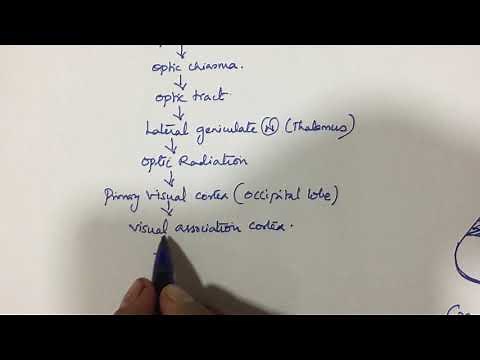 optic chiasma.
optic tract
Lateral geniculate Ⓝ (Thalamus)
optic Radiation
Primary visual cortex (occipital lobe)
visual association cortex.